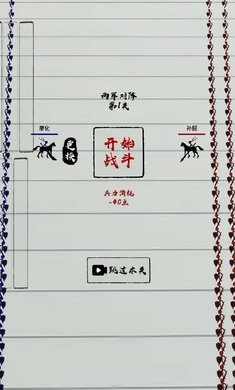 两军对阵
第1关
廖化
更换
孙韶
开始
战斗
兵力消耗
-40点
跳过本关